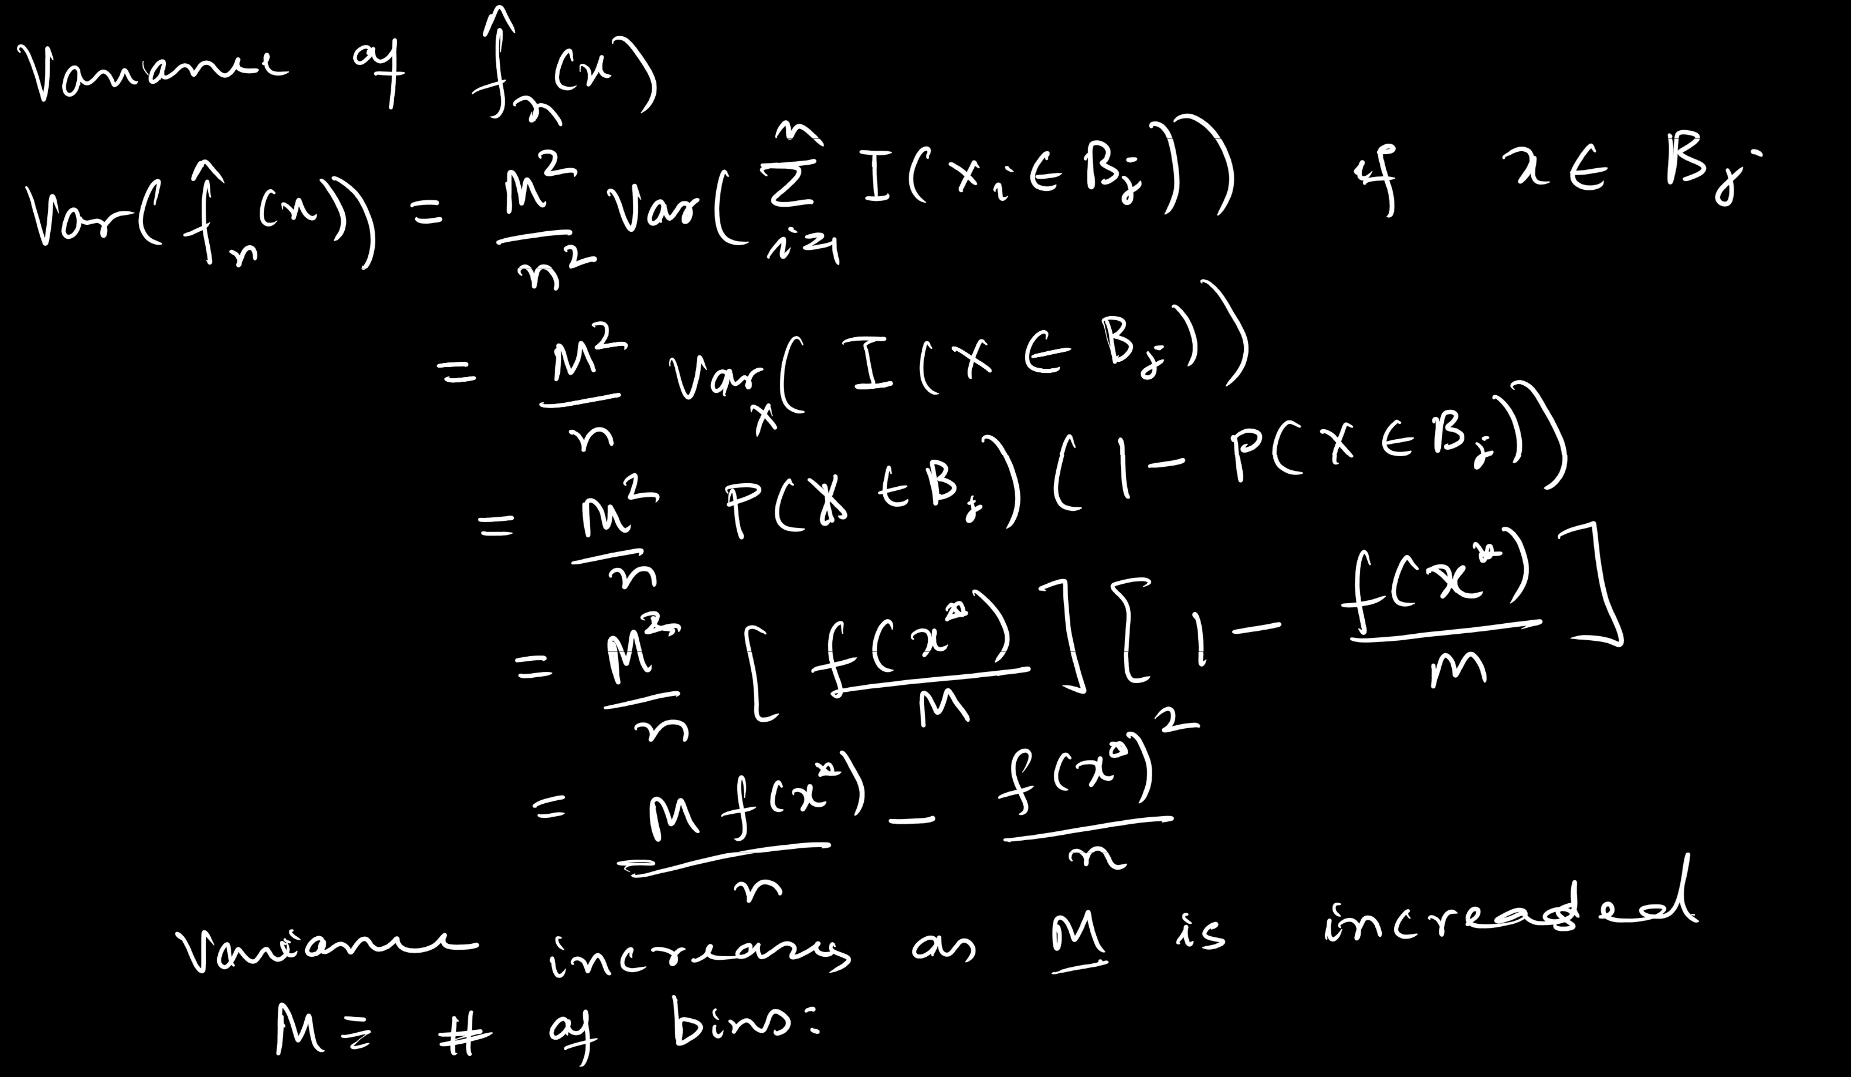 Variance of f̂ₙ(x)
Var(f̂ₙ(x)) = M²/n² Var(∑ᵢ₌₁ⁿ I(Xᵢ ∈ Bⱼ)) if x ∈ Bⱼ
= M²/n Varₓ(I(X ∈ Bⱼ))
= M²/n P(X ∈ Bⱼ)(1 - P(X ∈ Bⱼ))
= M²/n [f(x*)/M][1 - f(x*)/M]
= M f(x*)/n - f(x*)²/n
Variance increases as M is increased
M ≡ # of bins: